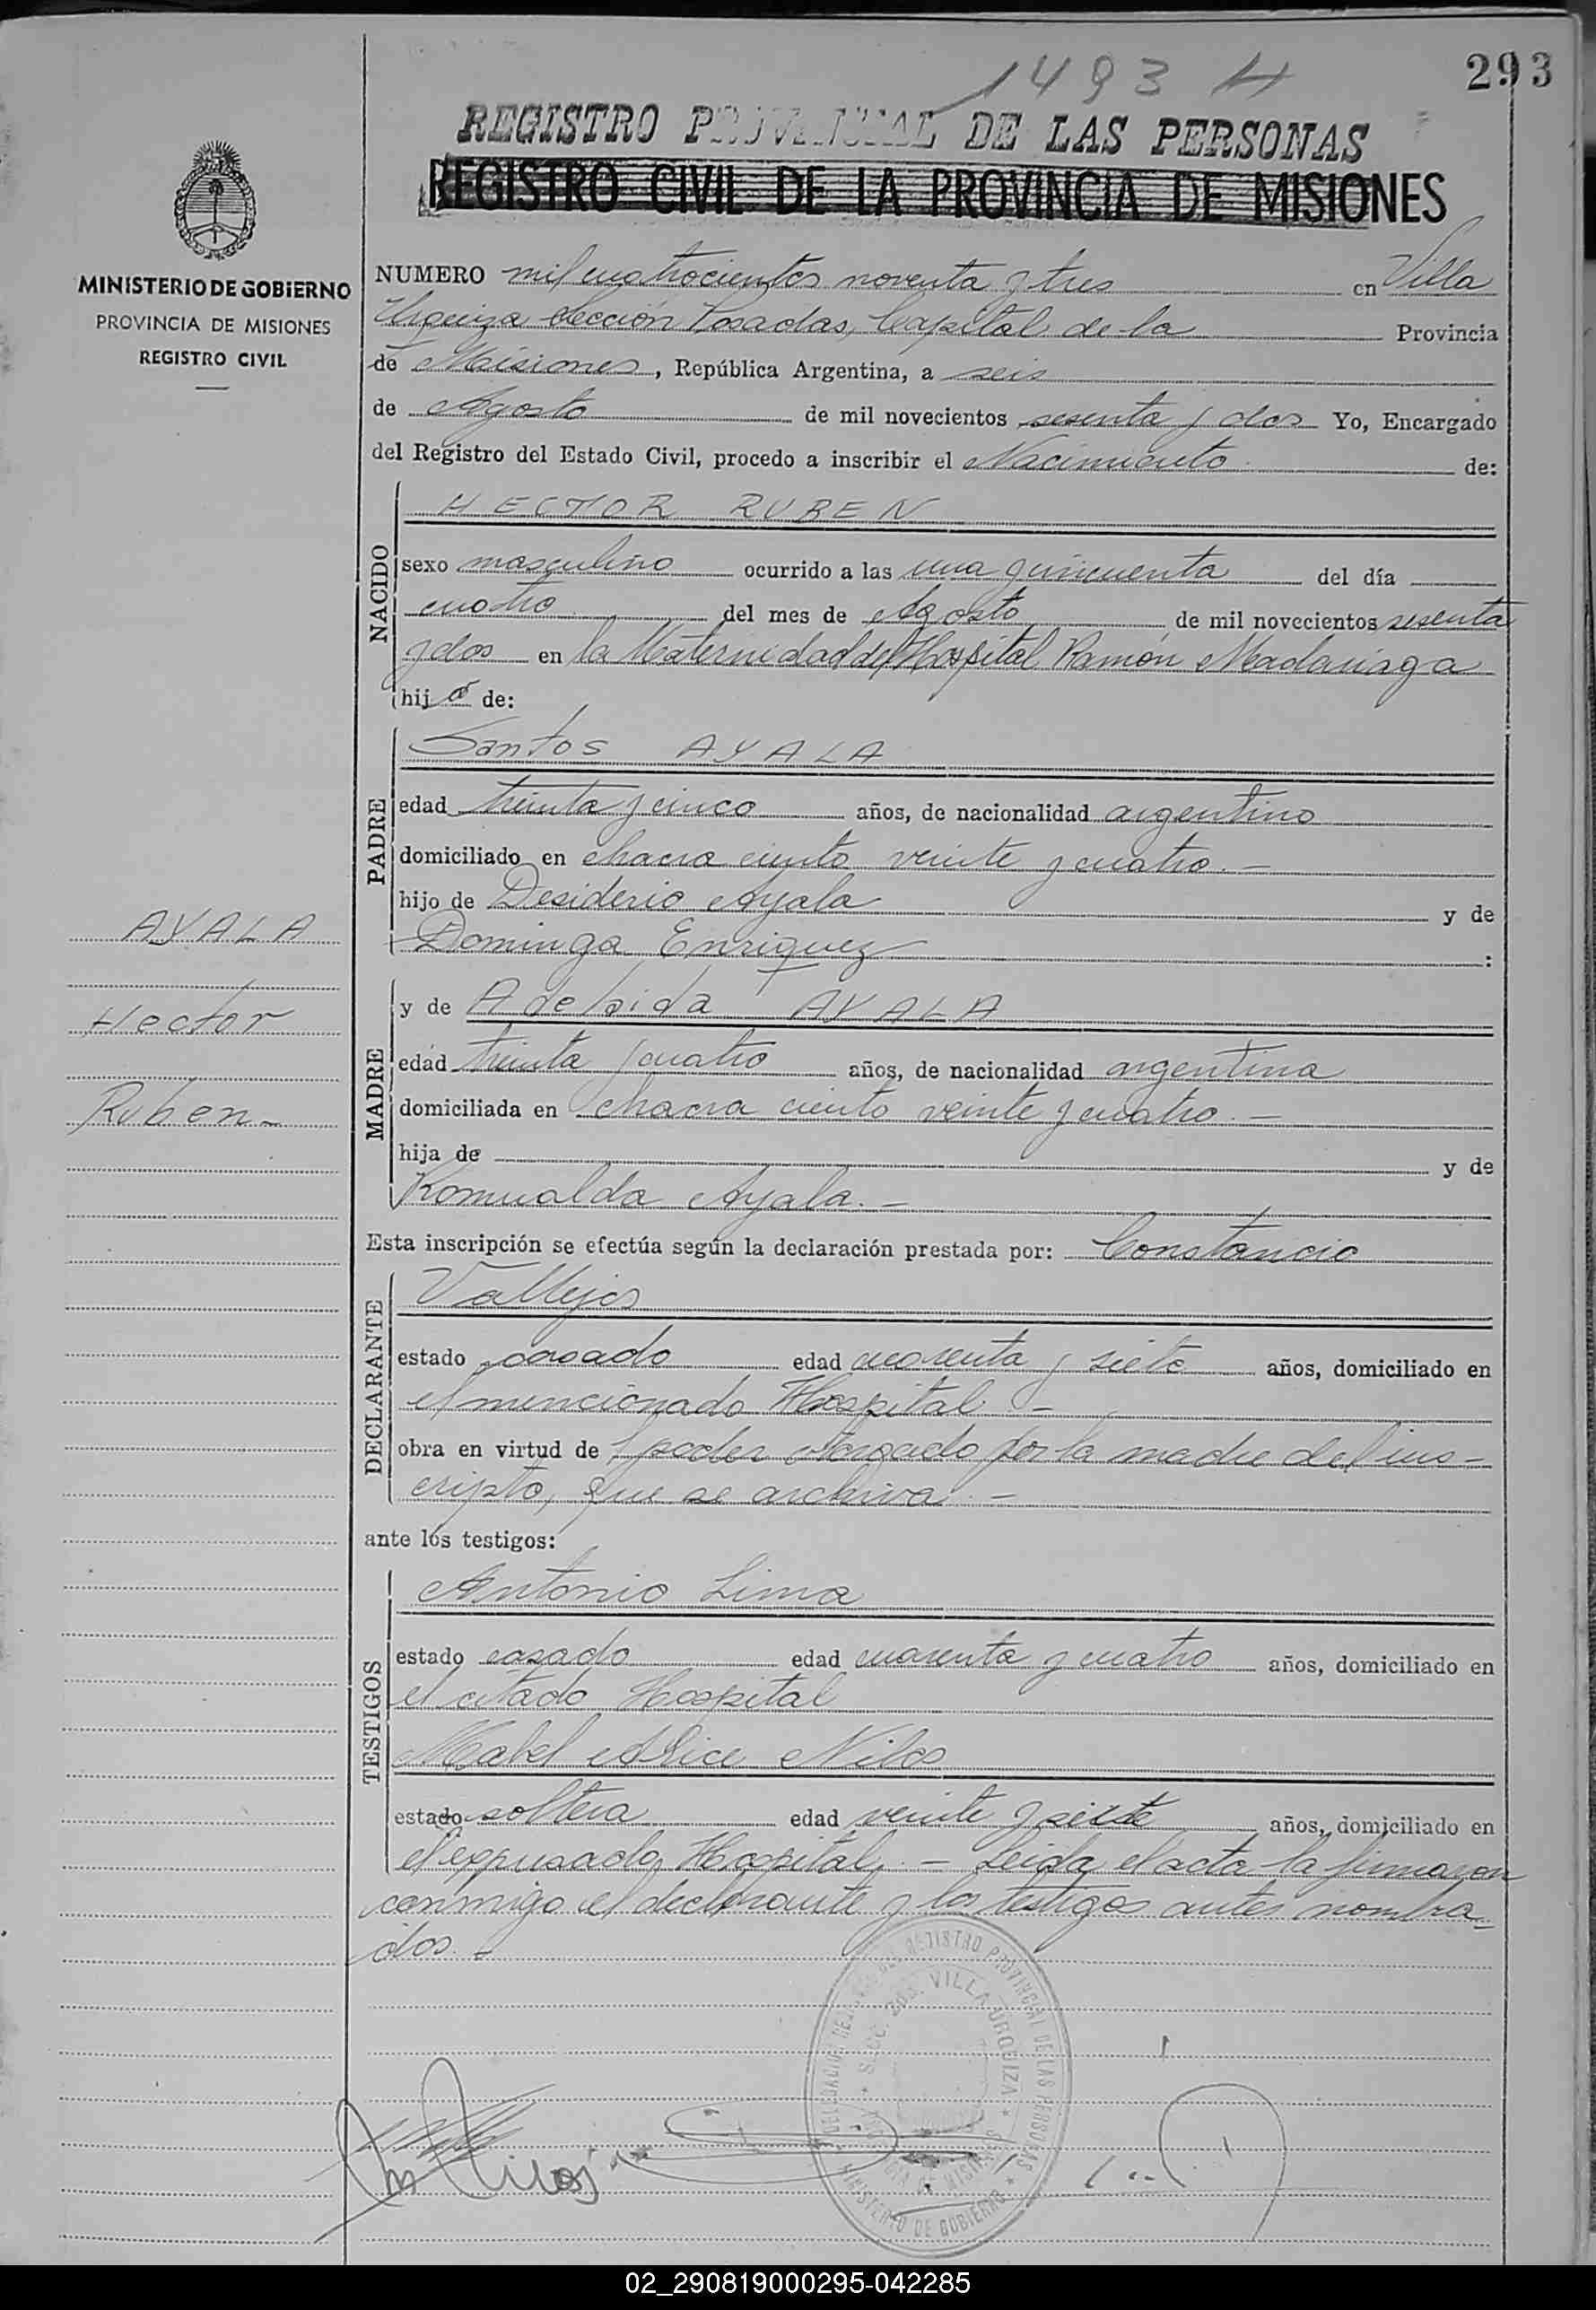 293
1493 H
REGISTRO PROVINCIAL DE LAS PERSONAS
REGISTRO CIVIL DE LA PROVINCIA DE MISIONES
MINISTERIO DE GOBIERNO
PROVINCIA DE MISIONES
REGISTRO CIVIL
NUMERO mil cuatrocientos noventa y tres en Villa
Urquiza Sección Posadas, Capital de la Provincia
de Misiones, República Argentina, a seis
de Agosto de mil novecientos sesenta y dos Yo, Encargado
del Registro del Estado Civil, procedo a inscribir el Nacimiento de:
NACIDO
HECTOR RUBEN
sexo masculino ocurrido a las una y cincuenta del día
cuatro del mes de Agosto de mil novecientos sesenta
y dos en la Maternidad del Hospital Ramón Madariaga
hijo de:
PADRE
Santos AYALA
edad treinta y cinco años, de nacionalidad argentino
domiciliado en chacra ciento veinte y cuatro.-
hijo de Desiderio Ayala y de
Dominga Enriquez :
AYALA
Hector
Ruben-
MADRE
y de Adelaida AYALA
edad treinta y cuatro años, de nacionalidad argentina
domiciliada en chacra ciento veinte y cuatro.-
hija de y de
Romualda Ayala.-
Esta inscripción se efectúa según la declaración prestada por: Constancio
DECLARANTE
Vallejos
estado casado edad cuarenta y siete años, domiciliado en
el mencionado Hospital.-
obra en virtud de poder otorgado por la madre del ins-
cripto, que se archiva.-
ante los testigos:
TESTIGOS
Antonio Lima
estado casado edad cuarenta y cuatro años, domiciliado en
el citado Hospital
Mabel Alice
estado soltera edad veinte y siete años, domiciliado en
el expresado Hospital.- Leida el acta la firmaron
conmigo el declarante y los testigos antes nombra-
dos.-
DELEGACION DEL REGISTRO PROVINCIAL DE LAS PERSONAS
SECC. VILLA URQUIZA
MISIONES
MINISTERIO DE GOBIERNO
02_290819000295-042285